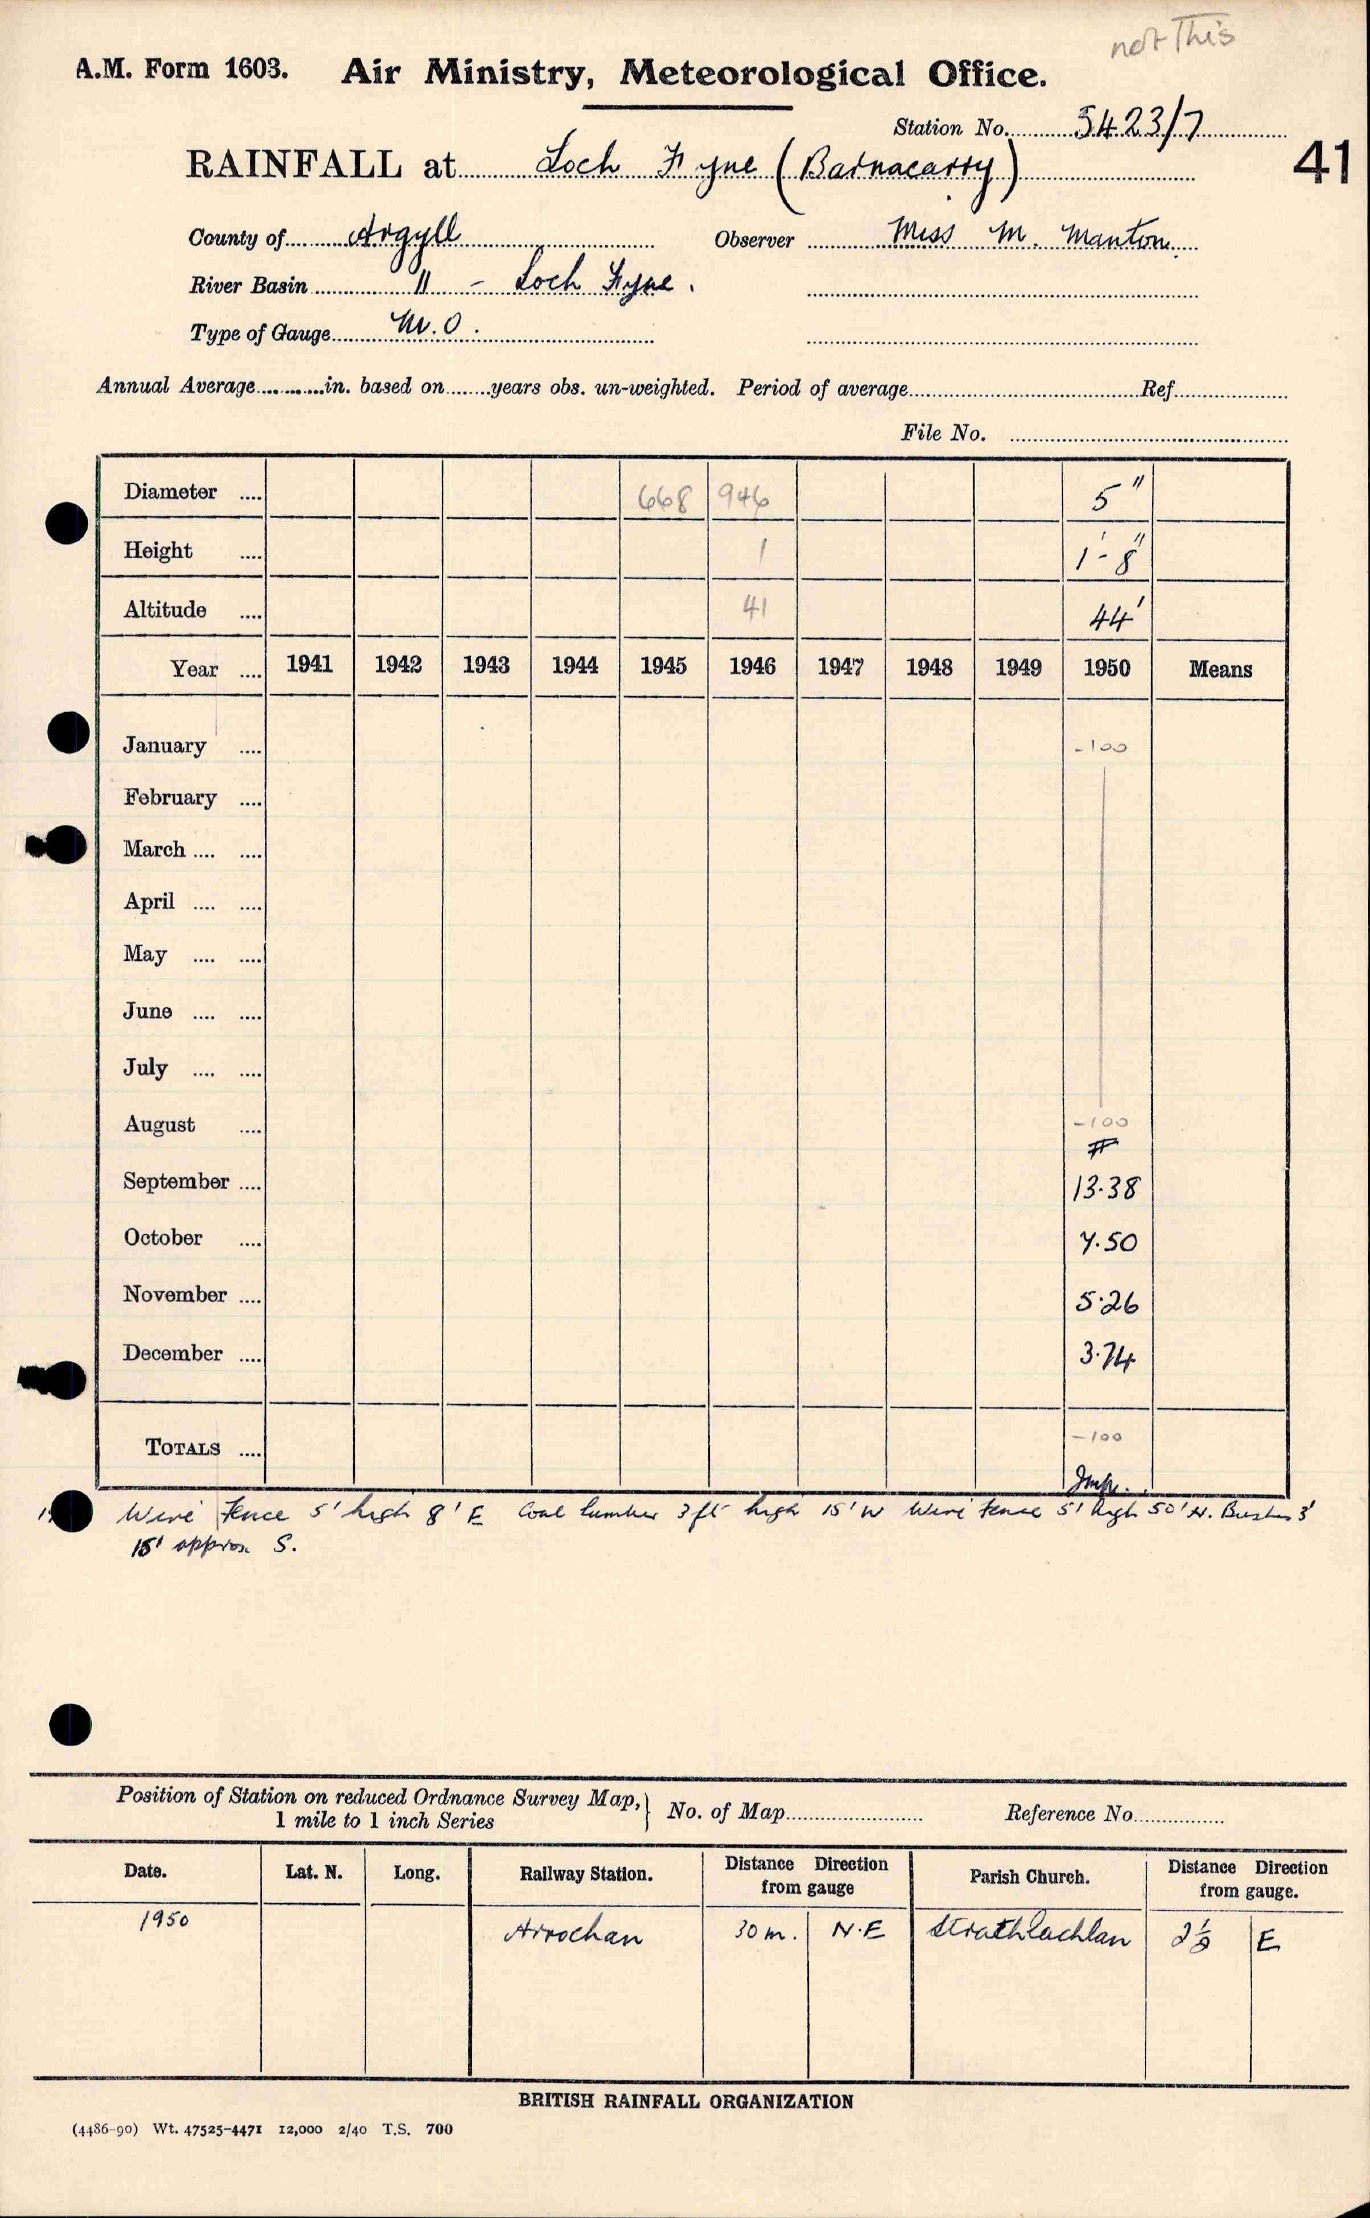 not This
A.M. Form 1603. Air Ministry, Meteorological Office.
Station No. 5423/7
RAINFALL at Loch Fyne (Barnacarry)
41
County of Argyll Observer Miss M. Manton.
River Basin " - Loch Fyne.
Type of Gauge M.O.
Annual Average..........in. based on.......years obs. un-weighted. Period of average..........Ref..........
File No. ..........
Diameter .... 668 946 5"
Height .... 1 1'-8"
Altitude .... 41 44'
Year .... 1941 1942 1943 1944 1945 1946 1947 1948 1949 1950 Means
January .... -100
February ....
March .... ....
April .... ....
May .... ....
June .... ....
July .... ....
August .... -100
September .... 13.38
October .... 7.50
November .... 5.26
December .... 3.74
TOTALS .... -100
Imp.
Wire Fence 5' high 8' E Coal bunker 3 ft high 15' W Wire fence 5' high 50' N. Bushes 3'
15' approx S.
Position of Station on reduced Ordnance Survey Map,
1 mile to 1 inch Series
No. of Map.......... Reference No..........
Date. Lat. N. Long. Railway Station. Distance Direction from gauge Parish Church. Distance Direction from gauge.
1950 Arrochar 30 m. N.E Strathlachlan 2½ E
BRITISH RAINFALL ORGANIZATION
(4486-90) Wt. 47525-4471 12,000 2/40 T.S. 700